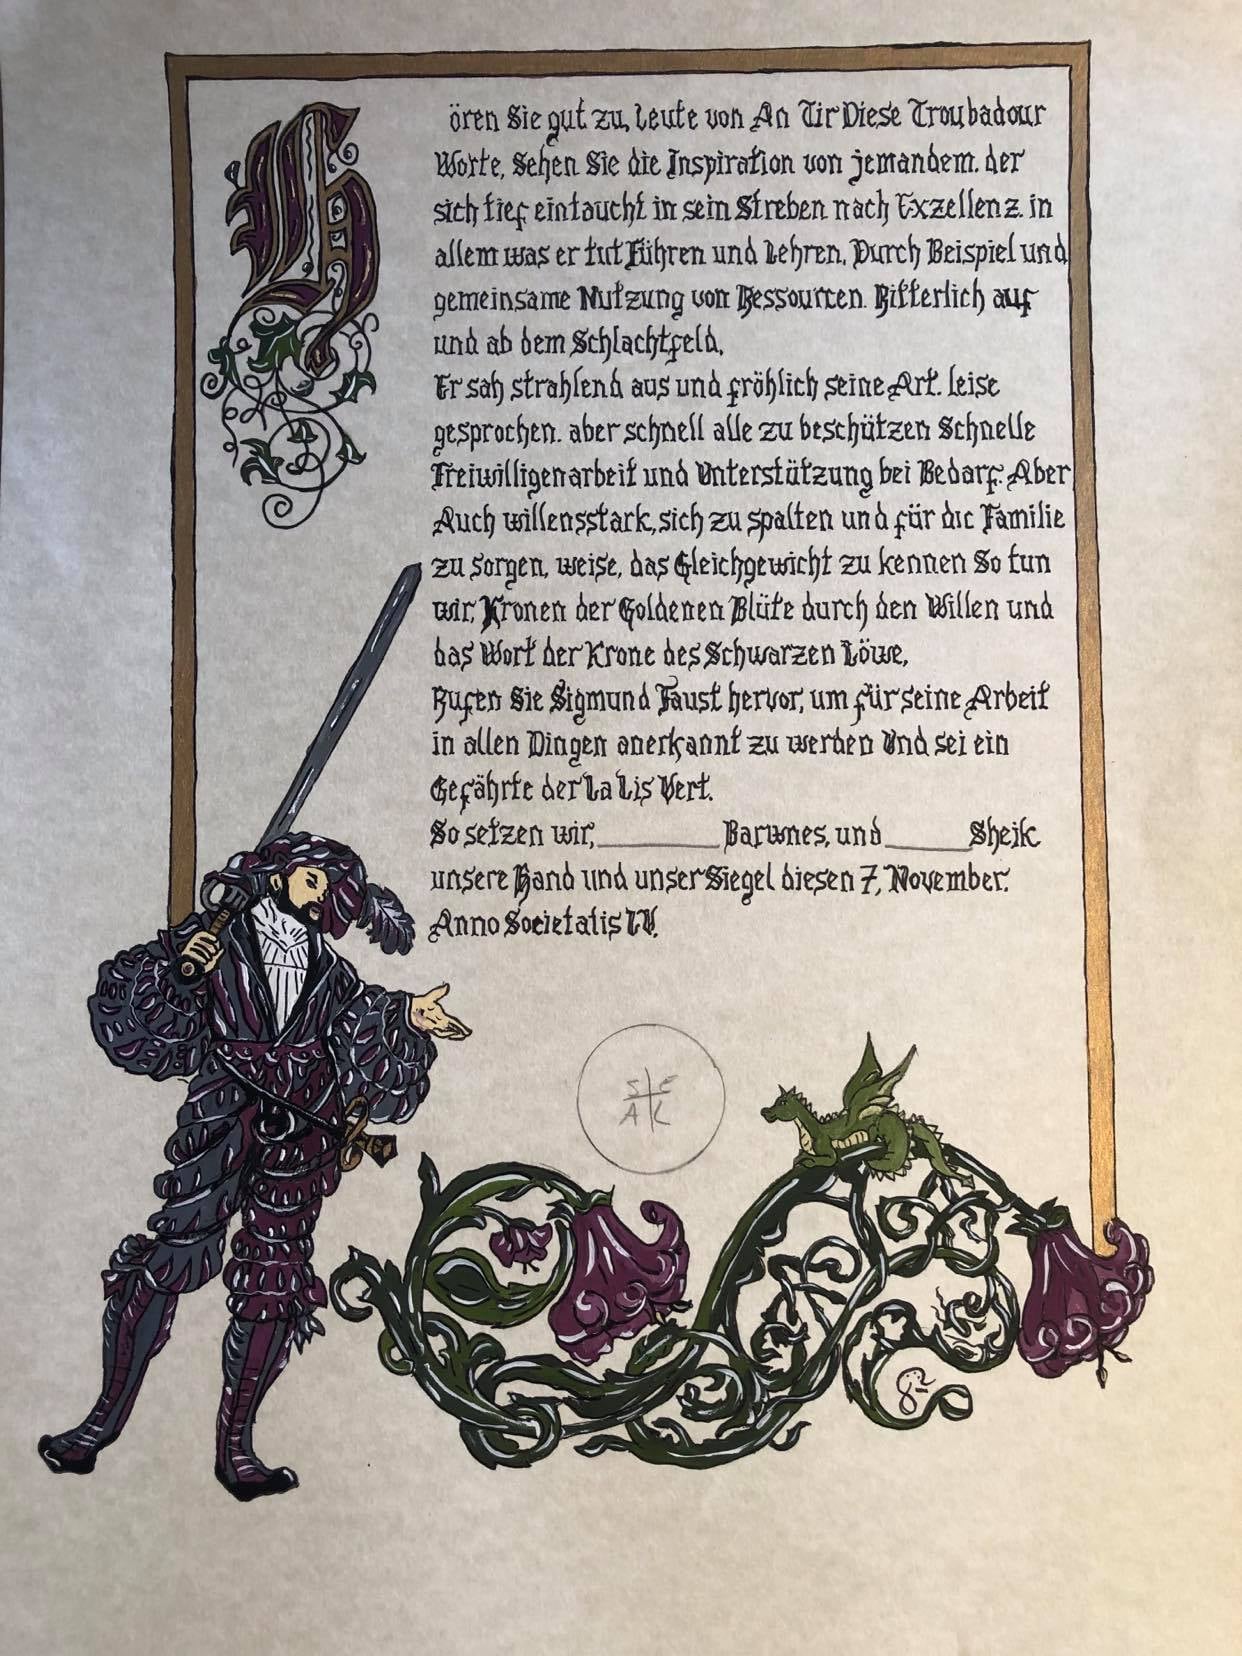 Hören Sie gut zu, Leute von An Tir Diese Troubadour
Worte, Sehen Sie die Inspiration von jemandem. der
sich tief eintaucht in sein Streben nach Exzellenz. in
allem was er tut Führen und Lehren, Durch Beispiel und
gemeinsame Nutzung von Ressourcen. Ritterlich auf
und ab dem Schlachtfeld,
Er sah strahlend aus und fröhlich seine Art. Leise
gesprochen. aber schnell alle zu beschützen Schnelle
Freiwilligenarbeit und Unterstützung bei Bedarf. Aber
Auch willensstark, sich zu spalten und für die Familie
zu sorgen, weise, das Gleichgewicht zu kennen So tun
wir, Kronen der Goldenen Blüte durch den Willen und
das Wort der Krone des Schwarzen Löwe,
Rufen Sie Sigmund Faust hervor, um für seine Arbeit
in allen Dingen anerkannt zu werden Und sei ein
Gefährte der La Lis Vert.
So setzen wir, ________ Barwnes, und ______ Sheik
unsere Hand und unser Siegel diesen 7, November.
Anno Societatis LV.
SEAL